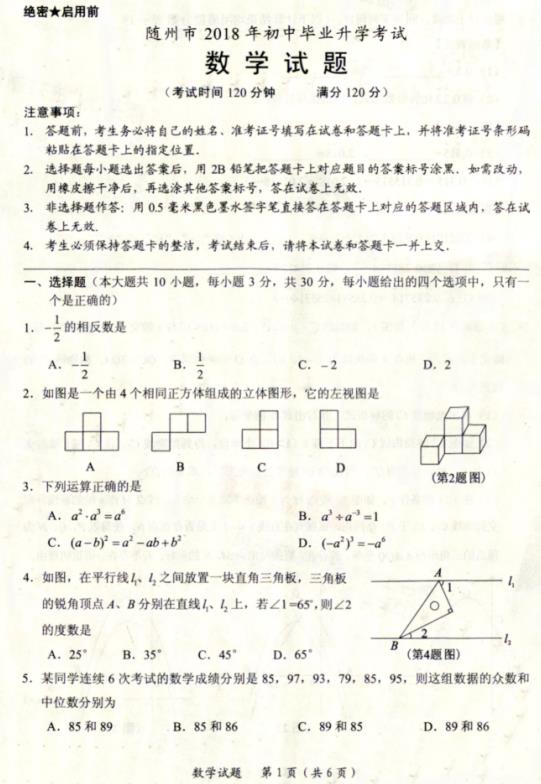 绝密★启用前
随州市 2018 年初中毕业升学考试
数 学 试 题
（考试时间 120 分钟 满分 120 分）
注意事项：
1. 答题前，考生务必将自己的姓名、准考证号填写在试卷和答题卡上，并将准考证号条形码
粘贴在答题卡上的指定位置.
2. 选择题每小题选出答案后，用 2B 铅笔把答题卡上对应题目的答案标号涂黑．如需改动，
用橡皮擦干净后，再选涂其他答案标号，答在试卷上无效.
3. 非选择题作答：用 0.5 毫米黑色墨水签字笔直接答在答题卡上对应的答题区域内，答在试
卷上无效.
4. 考生必须保持答题卡的整洁，考试结束后，请将本试卷和答题卡一并上交.
一、选择题（本大题共 10 小题，每小题 3 分，共 30 分，每小题给出的四个选项中，只有一
个是正确的）
1. −1/2 的相反数是
A. −1/2 B. 1/2 C. −2 D. 2
2. 如图是一个由 4 个相同正方体组成的立体图形，它的左视图是
A B C D
(第2题图)
3. 下列运算正确的是
A. a²·a³=a⁶ B. a³÷a⁻³=1
C. (a−b)²=a²−ab+b² D. (−a²)³=−a⁶
4. 如图，在平行线 l₁、l₂ 之间放置一块直角三角板，三角板
的锐角顶点 A、B 分别在直线 l₁、l₂ 上，若∠1=65°，则∠2
的度数是
A. 25° B. 35° C. 45° D. 65°
A
1
l₁
B
2
l₂
(第4题图)
5. 某同学连续 6 次考试的数学成绩分别是 85，97，93，79，85，95，则这组数据的众数和
中位数分别为
A. 85 和 89 B. 85 和 86 C. 89 和 85 D. 89 和 86
数学试题 第 1 页（共 6 页）